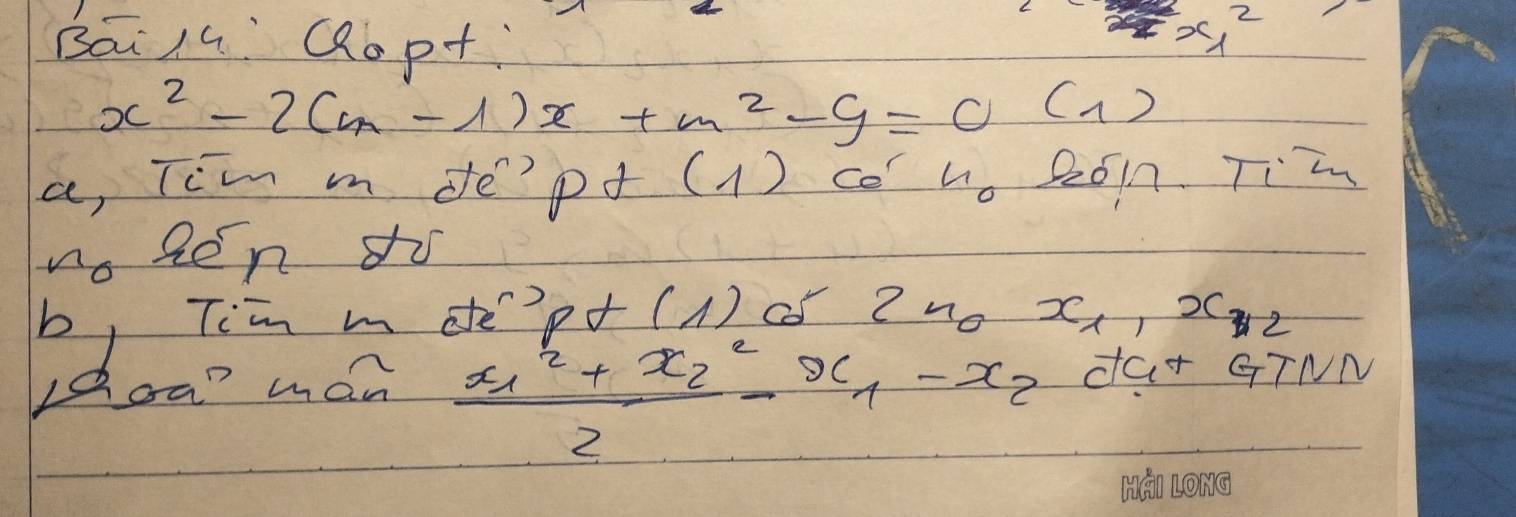 x₁²
Bài 14: Cho pt:
x² - 2(m - 1)x + m² - 9 = 0 (1)
a, Tìm m để pt (1) có n₀ kép. Tìm
n₀ kép đó
b, Tìm m để pt (1) có 2 n₀ x₁, x₂
thoả mãn (x₁² + x₂²)/2 - x₁ - x₂ đạt GTNN
HẢI LONG